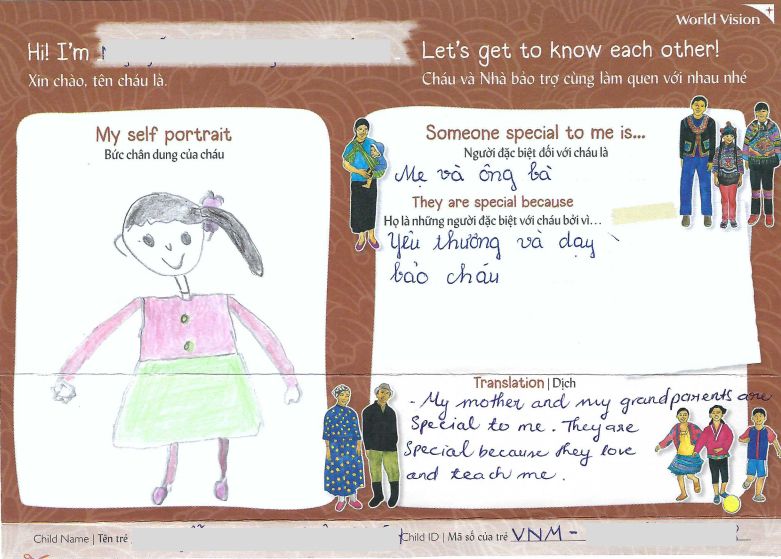 World Vision
Hi! I'm
Xin chào, tên cháu là.
Let's get to know each other!
Cháu và Nhà bảo trợ cùng làm quen với nhau nhé
My self portrait
Bức chân dung của cháu
Someone special to me is...
Người đặc biệt đối với cháu là
Mẹ và ông bà
They are special because
Họ là những người đặc biệt với cháu bởi vì...
Yêu thương và dạy
bảo cháu
Translation | Dịch
- My mother and my grandparents are
Special to me. They are
Special because they love
and teach me.
Child Name | Tên trẻ
Child ID | Mã số của trẻ VNM -